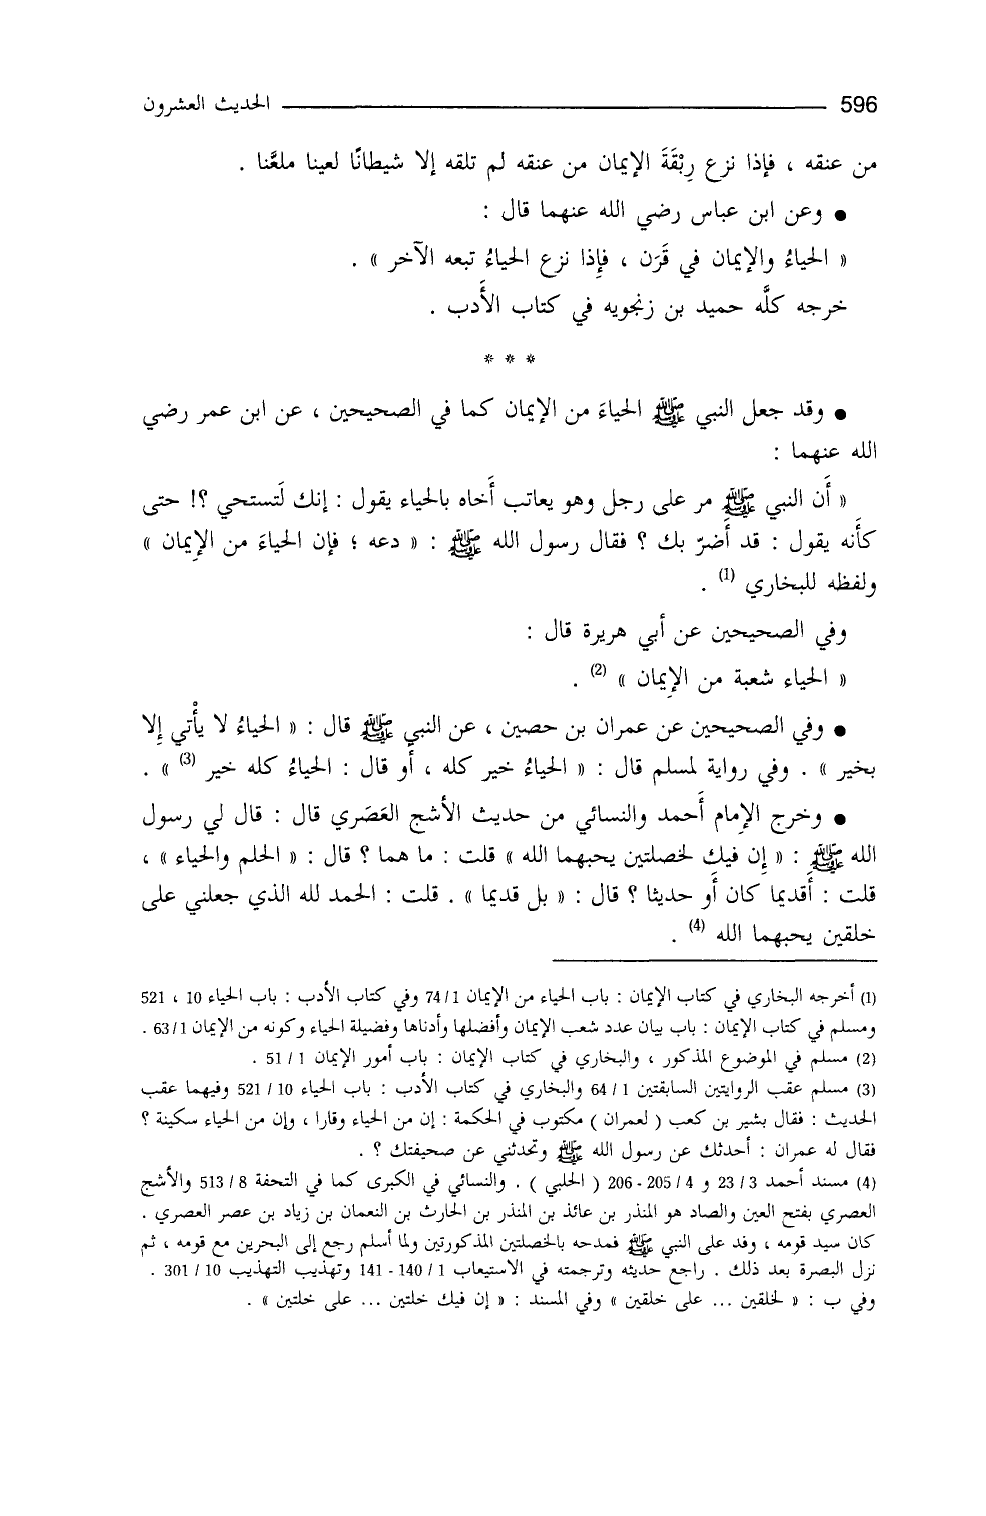 596 الحديث العشرون
من عنقه ، فإذا نزع رِبْقَةَ الإيمان من عنقه لم تلقه إلا شيطانًا لعينا ملعَّنا .
● وعن ابن عباس رضي الله عنهما قال :
« الحياءُ والإيمان في قَرَن ، فإذا نزع الحياءُ تبعه الآخر » .
خرجه كلَّه حميد بن زنجويه في كتاب الأَدب .
* * *
● وقد جعل النبي ﷺ الحياءَ من الإيمان كما في الصحيحين ، عن ابن عمر رضي
الله عنهما :
« أَن النبي ﷺ مر على رجل وهو يعاتب أَخاه بالحياء يقول : إنك لَتستحي ؟! حتى
كأَنه يقول : قد أَضرّ بك ؟ فقال رسول الله ﷺ : « دعه ؛ فإن الحياءَ من الإيمان »
ولفظه للبخاري (1) .
وفي الصحيحين عن أبي هريرة قال :
« الحياء شعبة من الإيمان » (2) .
● وفي الصحيحين عن عمران بن حصين ، عن النبي ﷺ قال : « الحياءُ لا يأْتي إلا
بخير » . وفي رواية لمسلم قال : « الحياءُ خير كله ، أَو قال : الحياءُ كله خير (3) » .
● وخرج الإمام أَحمد والنسائي من حديث الأشج العَصَري قال : قال لي رسول
الله ﷺ : « إن فيك لخصلتين يحبهما الله » قلت : ما هما ؟ قال : « الحلم والحياء » ،
قلت : أَقديما كان أَو حديثا ؟ قال : « بل قديما » . قلت : الحمد لله الذي جعلني على
خلقين يحبهما الله (4) .
(1) أخرجه البخاري في كتاب الإيمان : باب الحياء من الإيمان 1/ 74 وفي كتاب الأدب : باب الحياء 10 ، 521
ومسلم في كتاب الإيمان : باب بيان عدد شعب الإيمان وأفضلها وأدناها وفضيلة الحياء وكونه من الإيمان 1/ 63 .
(2) مسلم في الموضوع المذكور ، والبخاري في كتاب الإيمان : باب أمور الإيمان 1 / 51 .
(3) مسلم عقب الروايتين السابقتين 1 / 64 والبخاري في كتاب الأدب : باب الحياء 10 / 521 وفيهما عقب
الحديث : فقال بشير بن كعب ( لعمران ) مكتوب في الحكمة : إن من الحياء وقارا ، وإن من الحياء سكينة ؟
فقال له عمران : أحدثك عن رسول الله ﷺ وتحدثني عن صحيفتك ؟ .
(4) مسند أحمد 3 / 23 و 4 / 205 - 206 ( الحلبي ) . والنسائي في الكبرى كما في التحفة 8 / 513 والأشج
العصري بفتح العين والصاد هو المنذر بن عائذ بن المنذر بن الحارث بن النعمان بن زياد بن عصر العصري .
كان سيد قومه ، وفد على النبي ﷺ فمدحه بالخصلتين المذكورتين ولما أسلم رجع إلى البحرين مع قومه ، ثم
نزل البصرة بعد ذلك . راجع حديثه وترجمته في الاستيعاب 1 / 140 - 141 وتهذيب التهذيب 10 / 301 .
وفي ب : « لخلقين ... على خلقين » وفي المسند : « إن فيك خلتين ... على خلتين » .